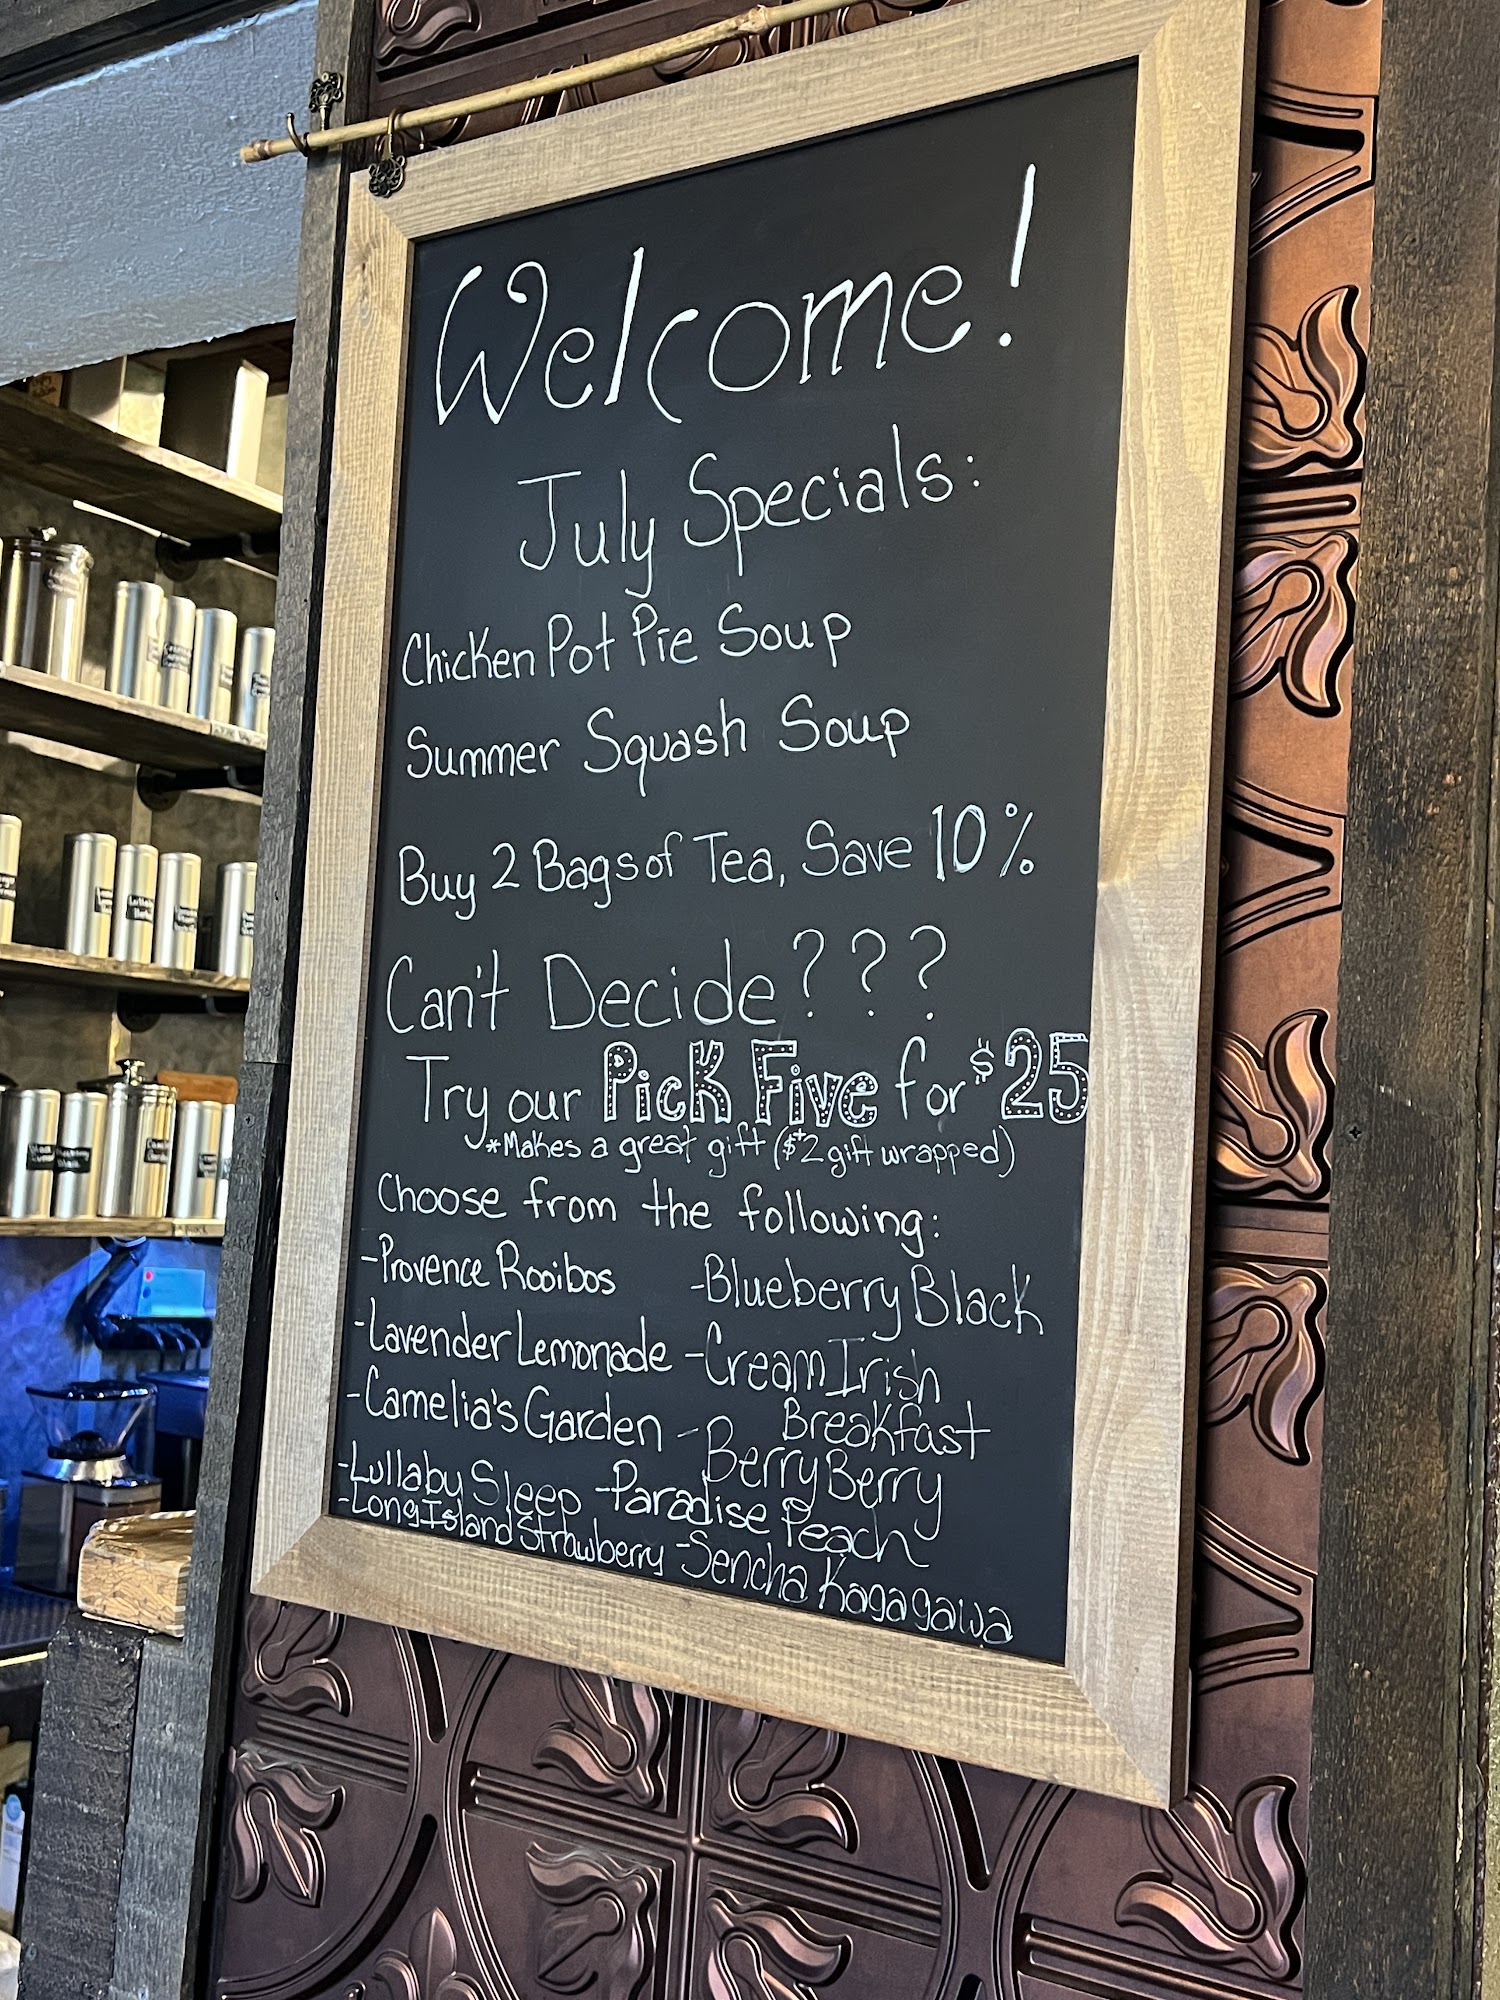 Welcome!
July Specials:
Chicken Pot Pie Soup
Summer Squash Soup
Buy 2 Bags of Tea, Save 10%
Can't Decide???
Try our Pick Five for $25
*Makes a great gift ($+2 gift wrapped)
Choose from the following:
-Provence Rooibos
-Lavender Lemonade
-Camelia's Garden
-Lullaby Sleep
-Long Island Strawberry
-Blueberry Black
-Cream Irish
Breakfast
-Berry Berry
-Paradise Peach
-Sencha Kagagawa